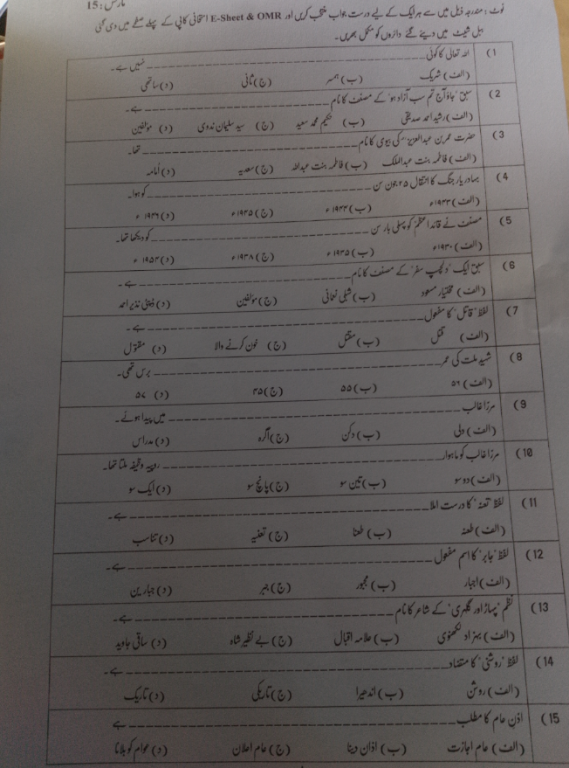 مارکس : 15
نوٹ : مندرجہ ذیل میں سے ہر ایک کے لیے درست جواب منتخب کریں اور E-Sheet & OMR امتحانی کاپی کے پہلے صفحے میں دی گئی
ببل شیٹ میں دیئے گئے دائروں کو مکمل بھریں۔
(1 اللہ تعالیٰ کا کوئی ــــــــــــ نہیں ہے۔
(الف) شریک (ب) ہمسر (ج) ثانی (د) ساتھی
(2 سبق 'جاؤ آج تم سب آزاد ہو' کے مصنف کا نام ــــــــــــ ہے۔
(الف) رشید احمد صدیقی (ب) حکیم محمد سعید (ج) سید سلیمان ندوی (د) مؤلفین
(3 حضرت عمر بن عبدالعزیزؒ کی بیوی کا نام ــــــــــــ تھا۔
(الف) فاطمہ بنت عبدالملک (ب) فاطمہ بنت عبداللہ (ج) سعدیہ (د) اُمامہ
(4 بہادر یار جنگ کا انتقال ۲۵ جون سن ــــــــــــ کو ہوا۔
(الف) ۱۹۴۳ء (ب) ۱۹۴۴ء (ج) ۱۹۴۵ء (د) ۱۹۴۶ء
(5 مصنف نے قائد اعظم کو پہلی بار سن ــــــــــــ کو دیکھا تھا۔
(الف) ۱۹۳۰ء (ب) ۱۹۳۵ء (ج) ۱۹۳۸ء (د) ۱۹۵۴ء
(6 سبق ایک 'دلچسپ سفر' کے مصنف کا نام ــــــــــــ ہے۔
(الف) مختار مسعود (ب) شبلی نعمانی (ج) مؤلفین (د) ڈپٹی نذیر احمد
(7 لفظ 'قاتل' کا مفعول ــــــــــــ ہے۔
(الف) قتل (ب) مقتل (ج) خون کرنے والا (د) مقتول
(8 شہیدِ ملت کی عمر ــــــــــــ برس تھی۔
(الف) ۵۶ (ب) ۵۵ (ج) ۴۵ (د) ۵۷
(9 مرزا غالب ــــــــــــ میں پیدا ہوئے۔
(الف) دلی (ب) دکن (ج) آگرہ (د) مدراس
(10 مرزا غالب کو ماہوار ــــــــــــ روپیہ وظیفہ ملتا تھا۔
(الف) دو سو (ب) تین سو (ج) پانچ سو (د) ایک سو
(11 لفظ 'تعنہ' کا درست املا ــــــــــــ ہے۔
(الف) طعنہ (ب) طعنا (ج) تعنیہ (د) تناسب
(12 لفظ 'جابر' کا اسم مفعول ــــــــــــ ہے۔
(الف) اجبار (ب) مجبور (ج) جبر (د) جبارین
(13 نظم 'پہاڑ اور گلہری' کے شاعر کا نام ــــــــــــ ہے۔
(الف) بہزاد لکھنوی (ب) علامہ اقبال (ج) بے نظیر شاہ (د) ساقی جاوید
(14 لفظ 'روشنی' کا متضاد ــــــــــــ ہے۔
(الف) روشن (ب) اندھیرا (ج) تاریکی (د) تاریک
(15 اذنِ عام کا مطلب ــــــــــــ ہے
(الف) عام اجازت (ب) اذان دینا (ج) عام اعلان (د) عوام کو بلانا